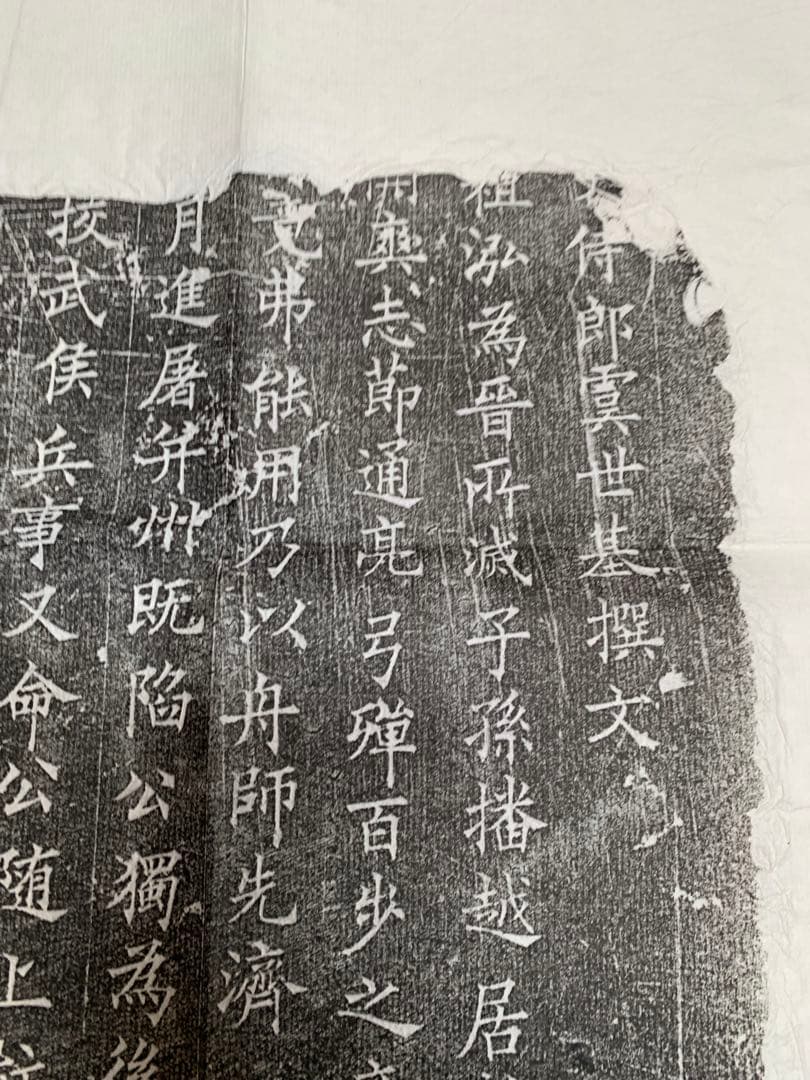 侍郎虞世基撰文
祖泓為晉所滅子孫播越居
爽志節通亮弓殫百步之
弗能用乃以舟師先濟
月進屠并州既陷公獨為後
授武侯兵事又命公随上